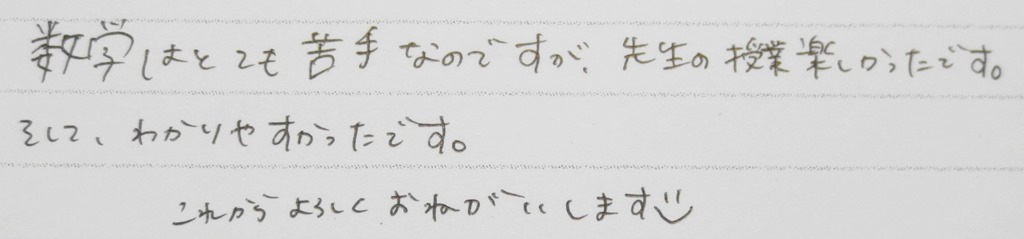 数学はとても苦手なのですが、先生の授業楽しかったです。
そして、わかりやすかったです。
これからよろしくおねがいします